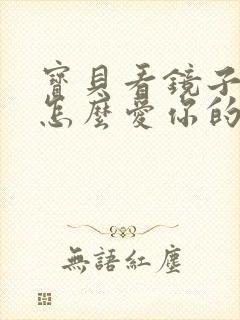 寶貝看鏡子
怎麼愛你的
無語紅塵